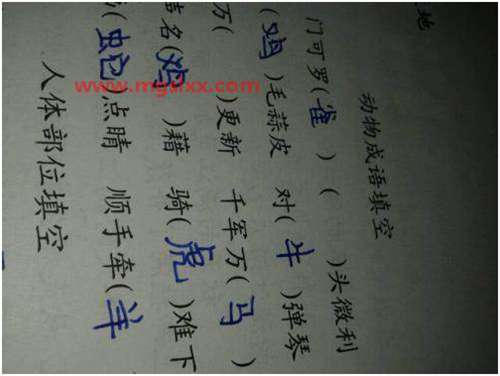 地
动物成语填空
门可罗(雀) ( )头微利
(鸡)毛蒜皮 对(牛)弹琴
万( )更新 千军万(马)
名(鸡)藉 骑(虎)难下
(蛇)点睛 顺手牵(羊
人体部位填空